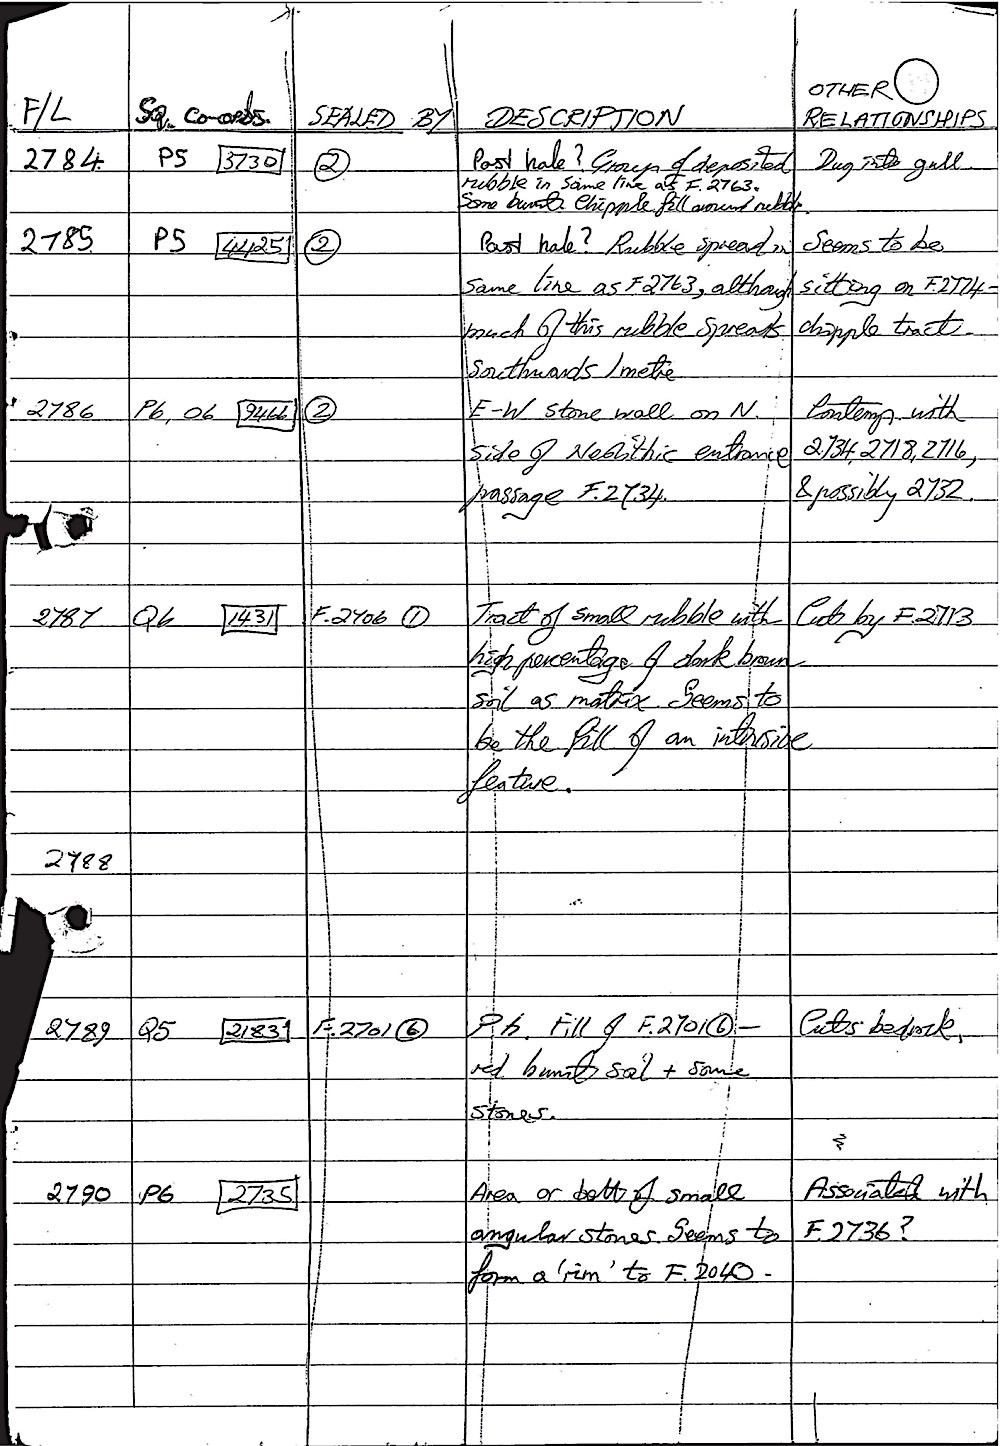 F/L Sq. Co-ords. SEALED BY DESCRIPTION OTHER RELATIONSHIPS
2784 P5 3730 ② Post hole? Group of deposited Dug into gull
rubble in same line as F.2763.
Some burnt. Chipple fill around rubble.
2785 P5 ② Post hole? Rubble spread in Seems to be
same line as F.2763, although sitting on F.2774-
much of this rubble spreads chipple tract.
Southwards 1 metre
2786 P6, O6 9466 ② E-W stone wall on N. Contemp. with
side of Neolithic entrance 2734, 2718, 2716,
passage F.2734. & possibly 2732.
2787 Q6 1431 F.2706 ① Tract of small rubble with Cut by F.2713
high percentage of dark brown
soil as matrix. Seems to
be the fill of an intrusive
feature.
2788
2789 Q5 F.2701⑥ P.h. Fill of F.2701⑥ - Cuts bedrock.
red burnt soil + some
stones.
2790 P6 2735 Area or belt of small Associated with
angular stones. Seems to F.2736?
form a 'rim' to F.2040 -